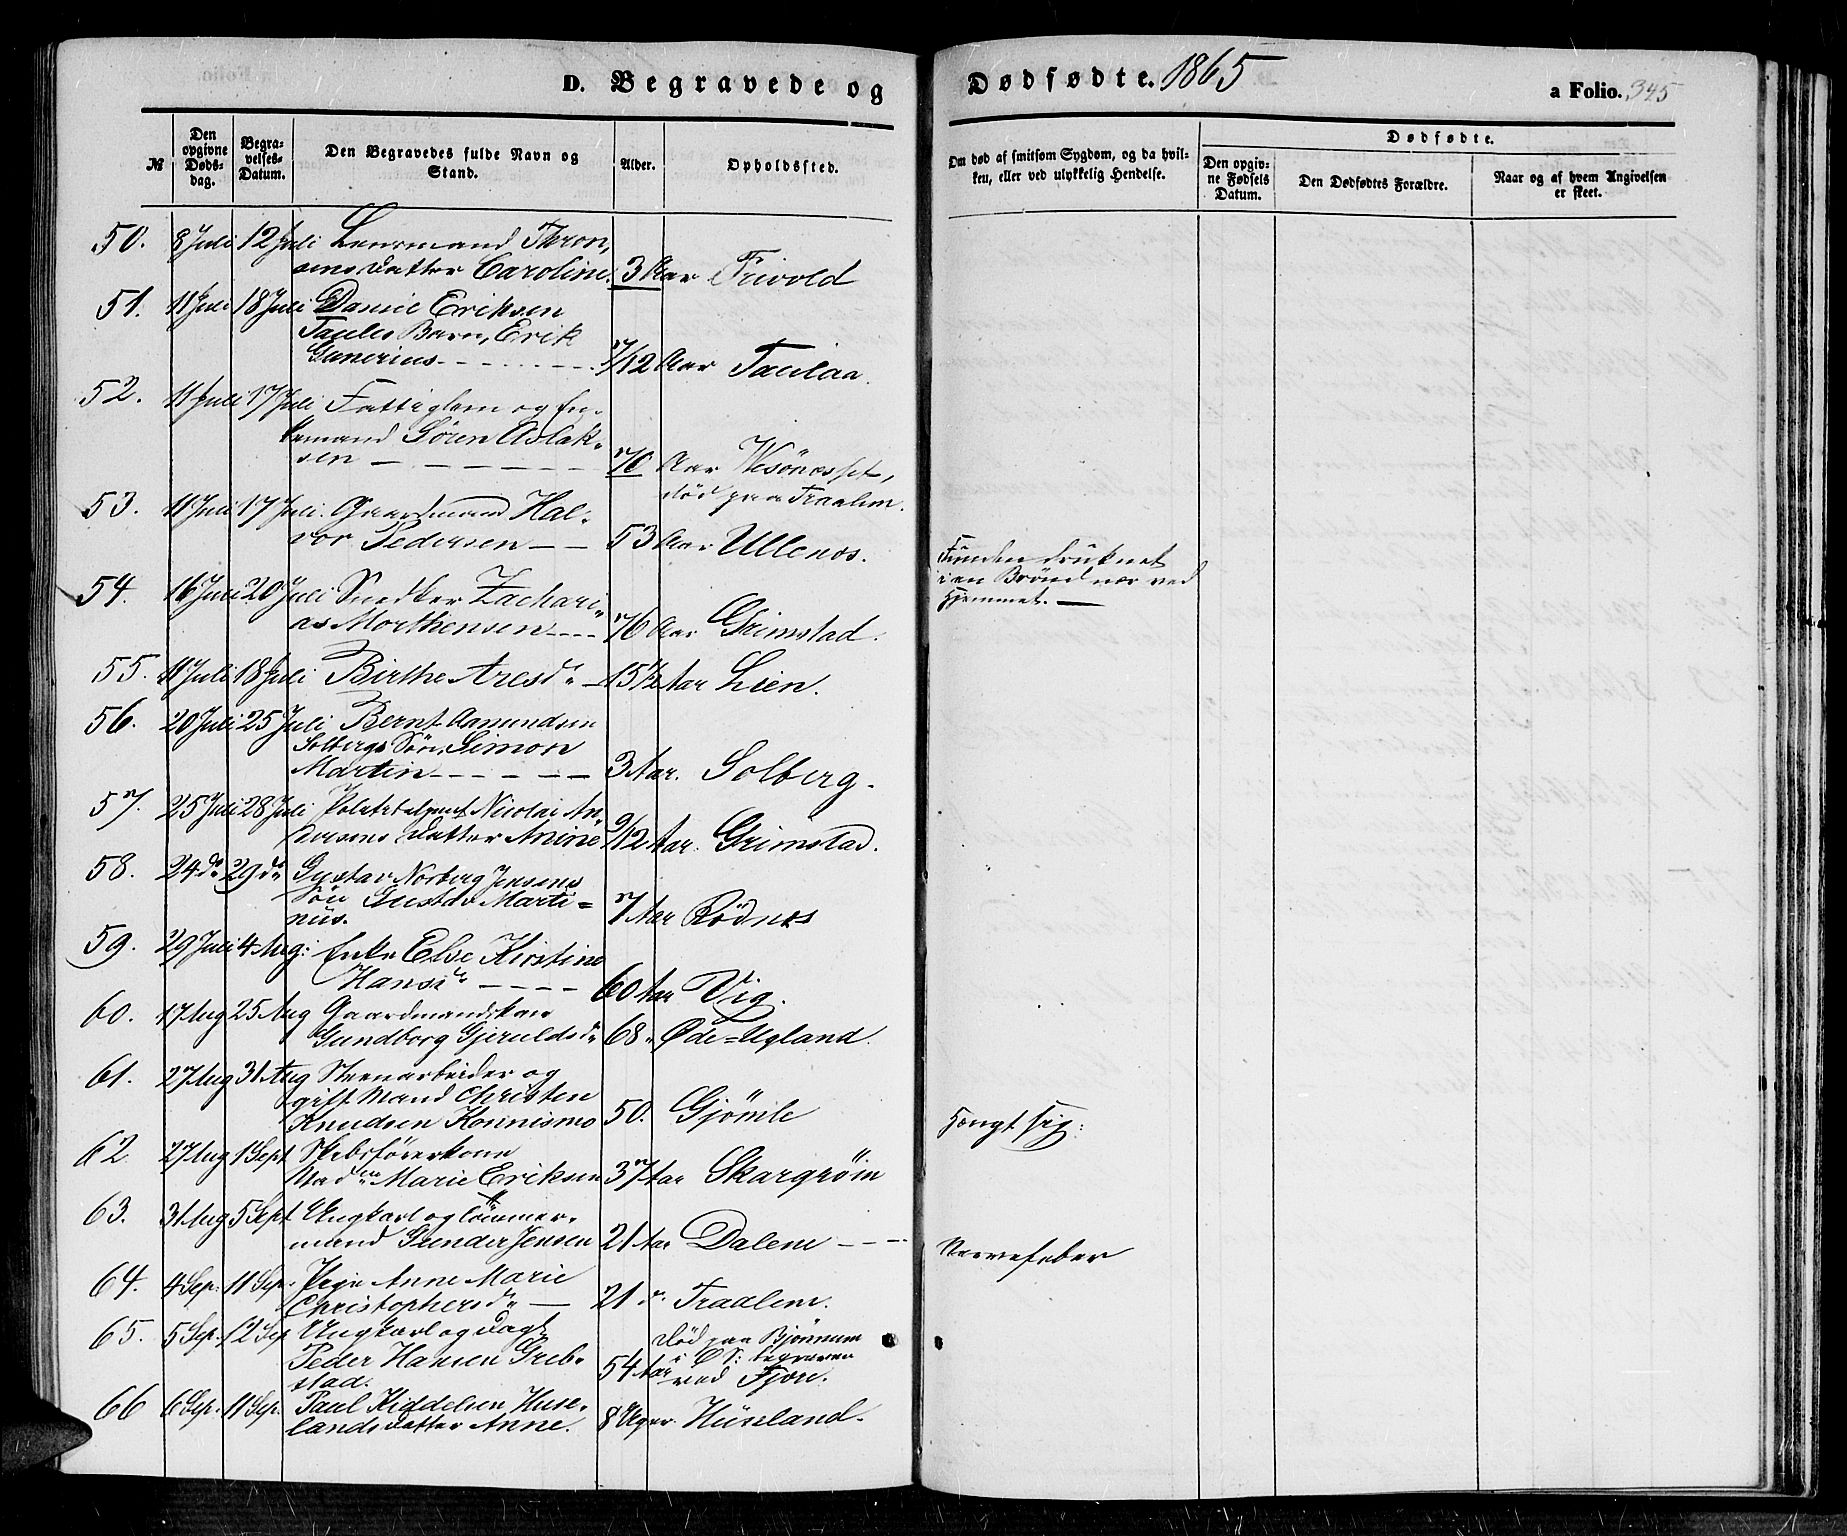 D. Begravede og Dødfødte. 1865
a Folio. 345
№
Den opgivne Døds-dag.
Begra-velses-Datum.
Den Begravedes fulde Navn og Stand.
Alder.
Opholdssted.
Om død af smitsom Sygdom, og da hvil-ken, eller ved ulykkelig Hendelse.
Dødfødte.
Den opgiv-ne Fødsels Datum.
Den Dødfødtes Forældre.
Naar og af hvem Angivelsen er skeet.
50. 8 Juli 12 Juli Lensmand Thron,
sens Datter Caroline. 3 Aar Frivold
51. 11 Juli 18 Juli Daniel Eriksen
Taules Barn, Erik
Gunerius 7/12 Aar Taulaa.
52. 11 Juli 17 Juli Fattiglem og En-
kemand Sören Aslak-
sen 70 Aar Vesönesset,
död paa Traalem.
53. 11 Juli 17 Juli Gaardmand Hal-
vor Pedersen 53 Aar Ullenes.
Funden druknet
i en Brönd nær ved
Hjemmet.
54. 16 Juli 20 Juli Snedker Zachari-
as Morthensen 76 Aar Grimstad.
55. 11 Juli 18 Juli Birthe Aresd. 15 1/2 Aar Lien.
56. 20 Juli 25 Juli Bernt Aamundsen
Solbergs Sön, Simon
Martin 3 Aar. Solberg.
57. 25 Juli 28 Juli Politibetjent Nicolai An-
dersens Datter Anine 9/12 Aar. Grimstad.
58. 24 do 29 do Gustav Norberg Jensens
Sön Gustav Marti=
nus. 7 Aar Rödnes
59. 29 Juli 4 Aug: Enke Else Kirstine
Hansd. 60 Aar Vig.
60. 17 Aug 25 Aug Gaardmandskone
Gundborg Gjeruldsd. 68 " Øde=Ugland.
61. 27 Aug 31 Aug Steenarbeider og
gift Mand Christen
Knudsen Konnismo 50. Gjömle
Hængt sig:
62. 27 Aug 1 Sept Skibsförerkone
Mad. Marie Eriksen 37 Aar Skargröm
63. 31 Aug 5 Sept Ungkarl og Tömmer-
mand Gunder Jensen 21 Aar Dalene
Nervefeber
64. 4 Sep: 11 Sep. Pige Anne Marie
Christophersd. 21 " Traalem.
65. 5 Sep. 12 Sep Ungkarl og Dagl.
Peder Hansen Greb-
stad. 54 Aar
död paa Bjönnum
i ÖS: begraven
ved Fjære.
66 6 Sep. 11 Sep. Paul Kiddelsen Huse-
lands Datter Anne. 8 Uger. Hüseland.